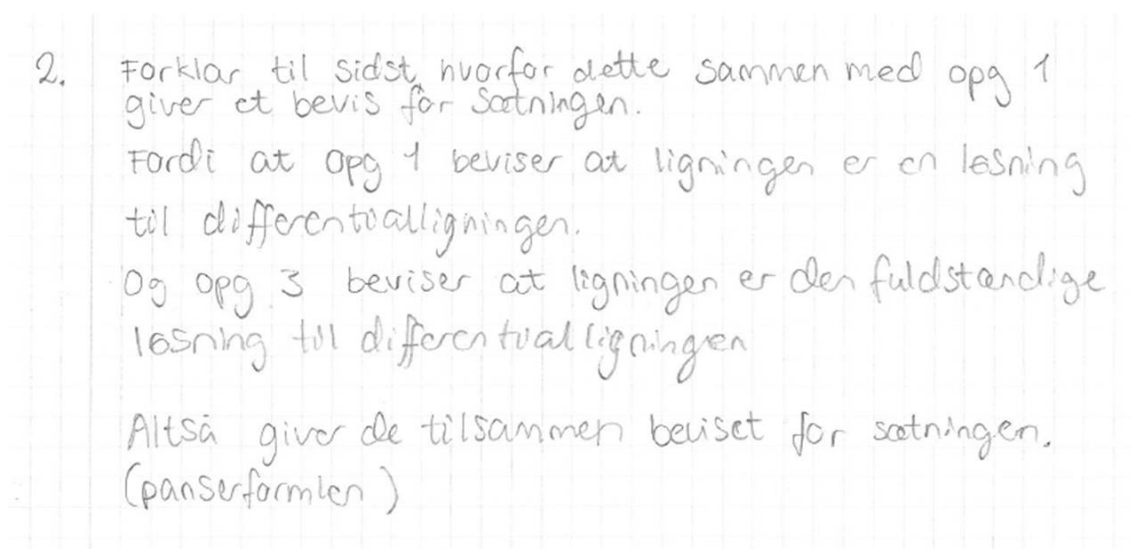 2. Forklar til sidst, hvorfor dette sammen med opg 1
giver et bevis for sætningen.
Fordi at opg 1 beviser at ligningen er en løsning
til differentialligningen.
Og opg 3 beviser at ligningen er den fuldstændige
løsning til differentialligningen
Altså giver de tilsammen beviset for sætningen.
(panserformlen)